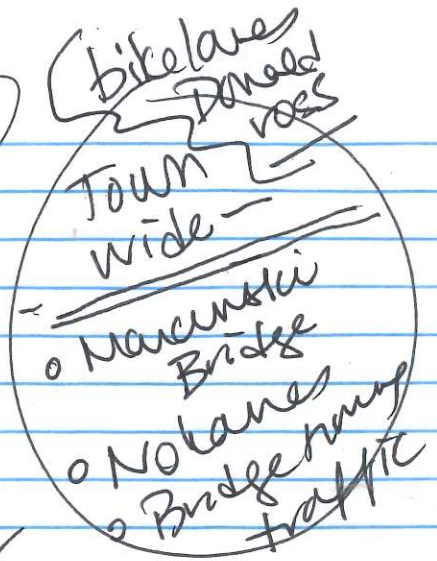 bikelanes
Donald
ross
Town
wide -
o Marcinski
Bridge
o No lanes
o Bridge timing
traffic